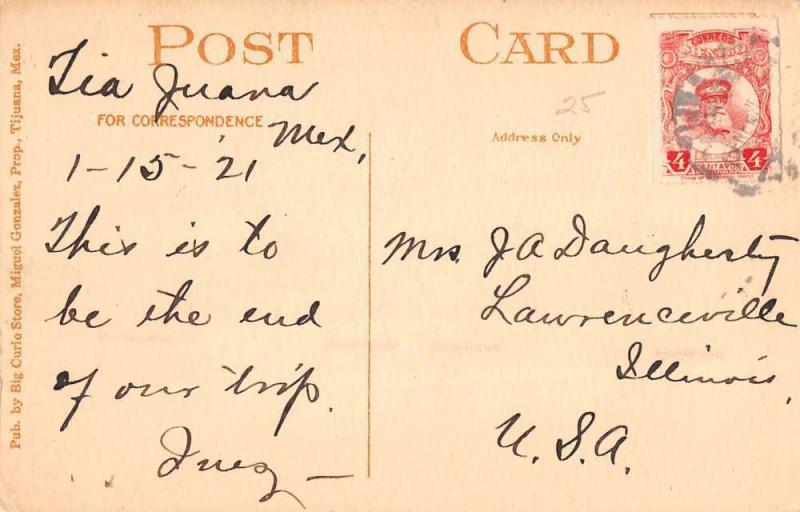 POST CARD
Tia Juana
FOR CORRESPONDENCE
Mex,
1-15-'21
This is to
be the end
of our trip.
Inez —
Pub. by Big Curio Store, Miguel Gonzalez, Prop., Tijuana, Mex.
25
Address Only
CORREOS
MEXICO
4 CENTAVOS 4
Mrs. J A Daugherty
Lawrenceville
Illinois,
U. S. A.